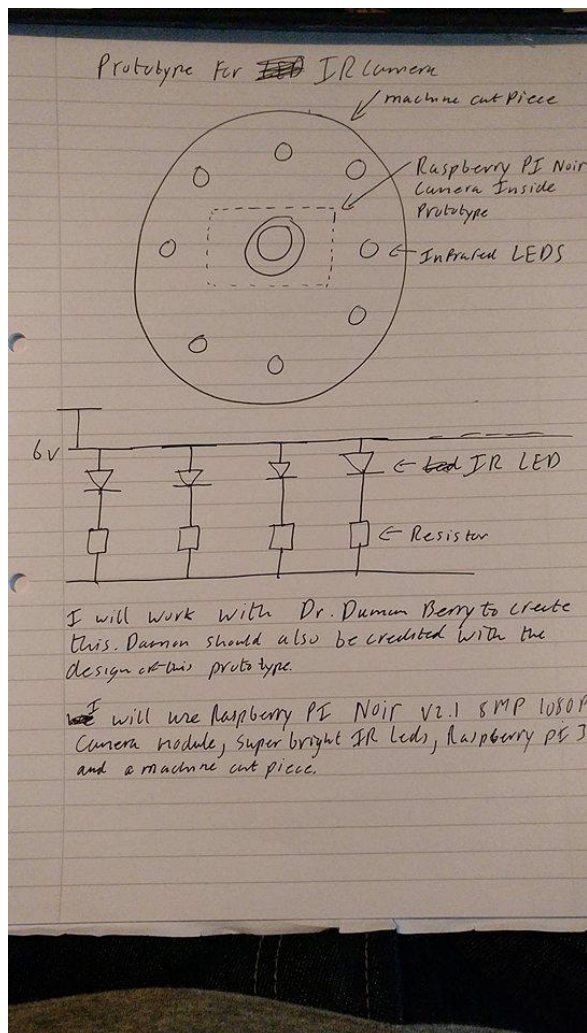 Prototype For IR Camera
machine cut Piece
Raspberry PI Noir
Camera Inside
Prototype
Infrared LEDS
6V
IR LED
Resistor
I will work with Dr. Damon Berry to create
this. Damon should also be credited with the
design of this prototype.
I will use Raspberry PI Noir V2.1 8MP 1080P
Camera module, super bright IR Leds, Raspberry pi 3
and a machine cut piece.